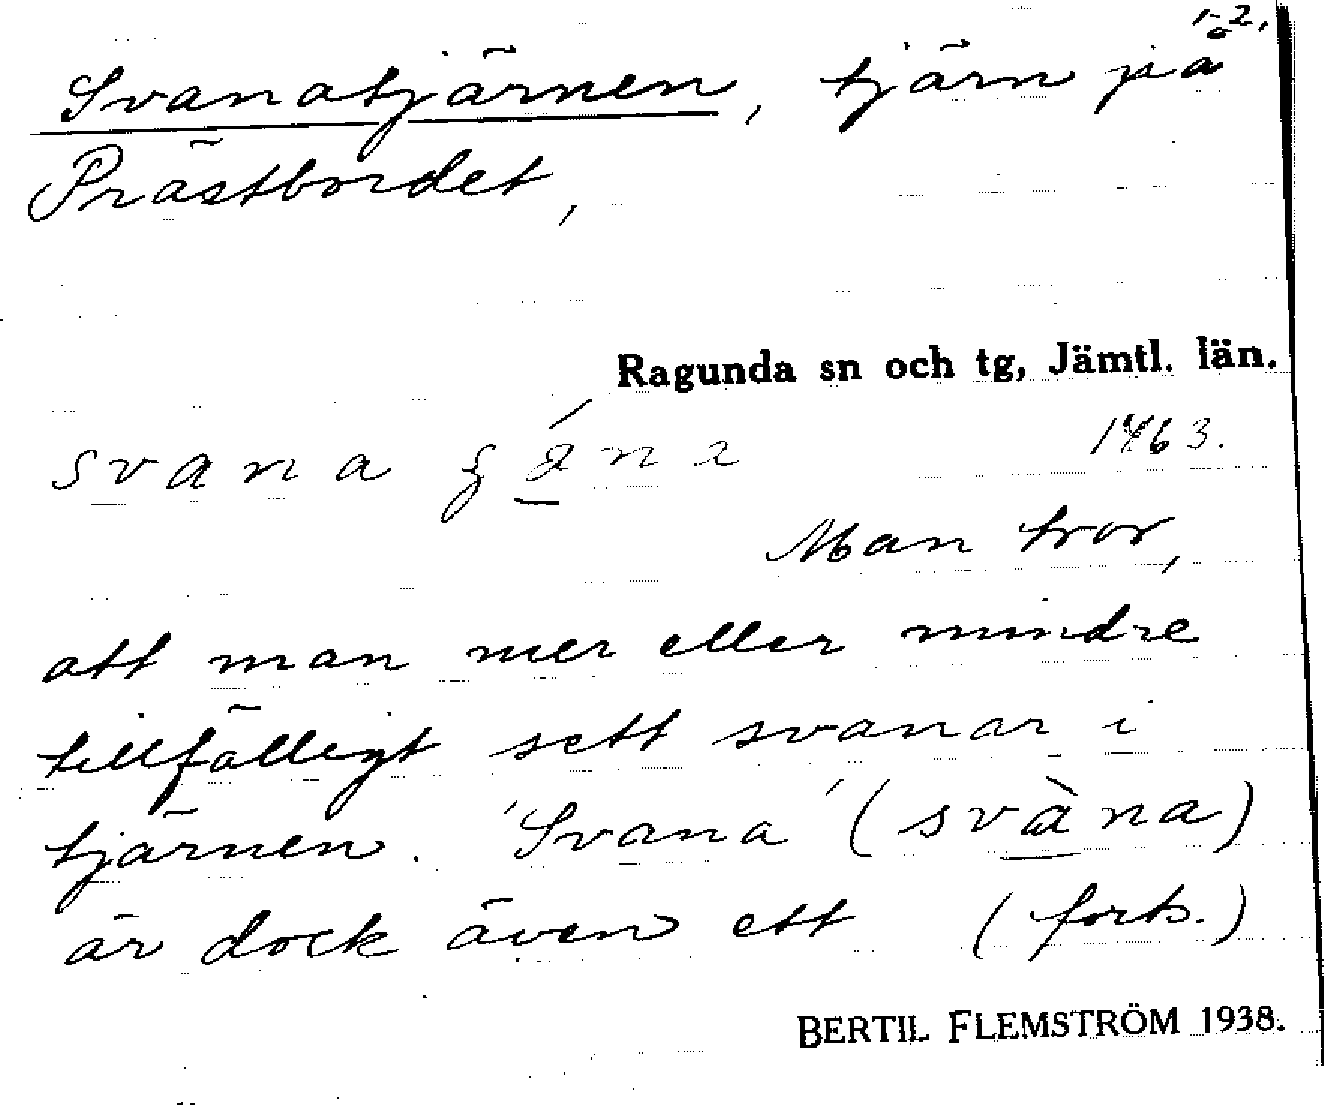 1-2,
Svanatjärnen, tjärn på
Prästbordet,
Ragunda sn och tg, Jämtl. län.
svana
1463.
Man tror,
att man mer eller mindre
tillfälligt sett svanar i
tjärnen. 'Svana' (svàna)
är dock även ett (forts.)
BERTIL FLEMSTRÖM 1938.